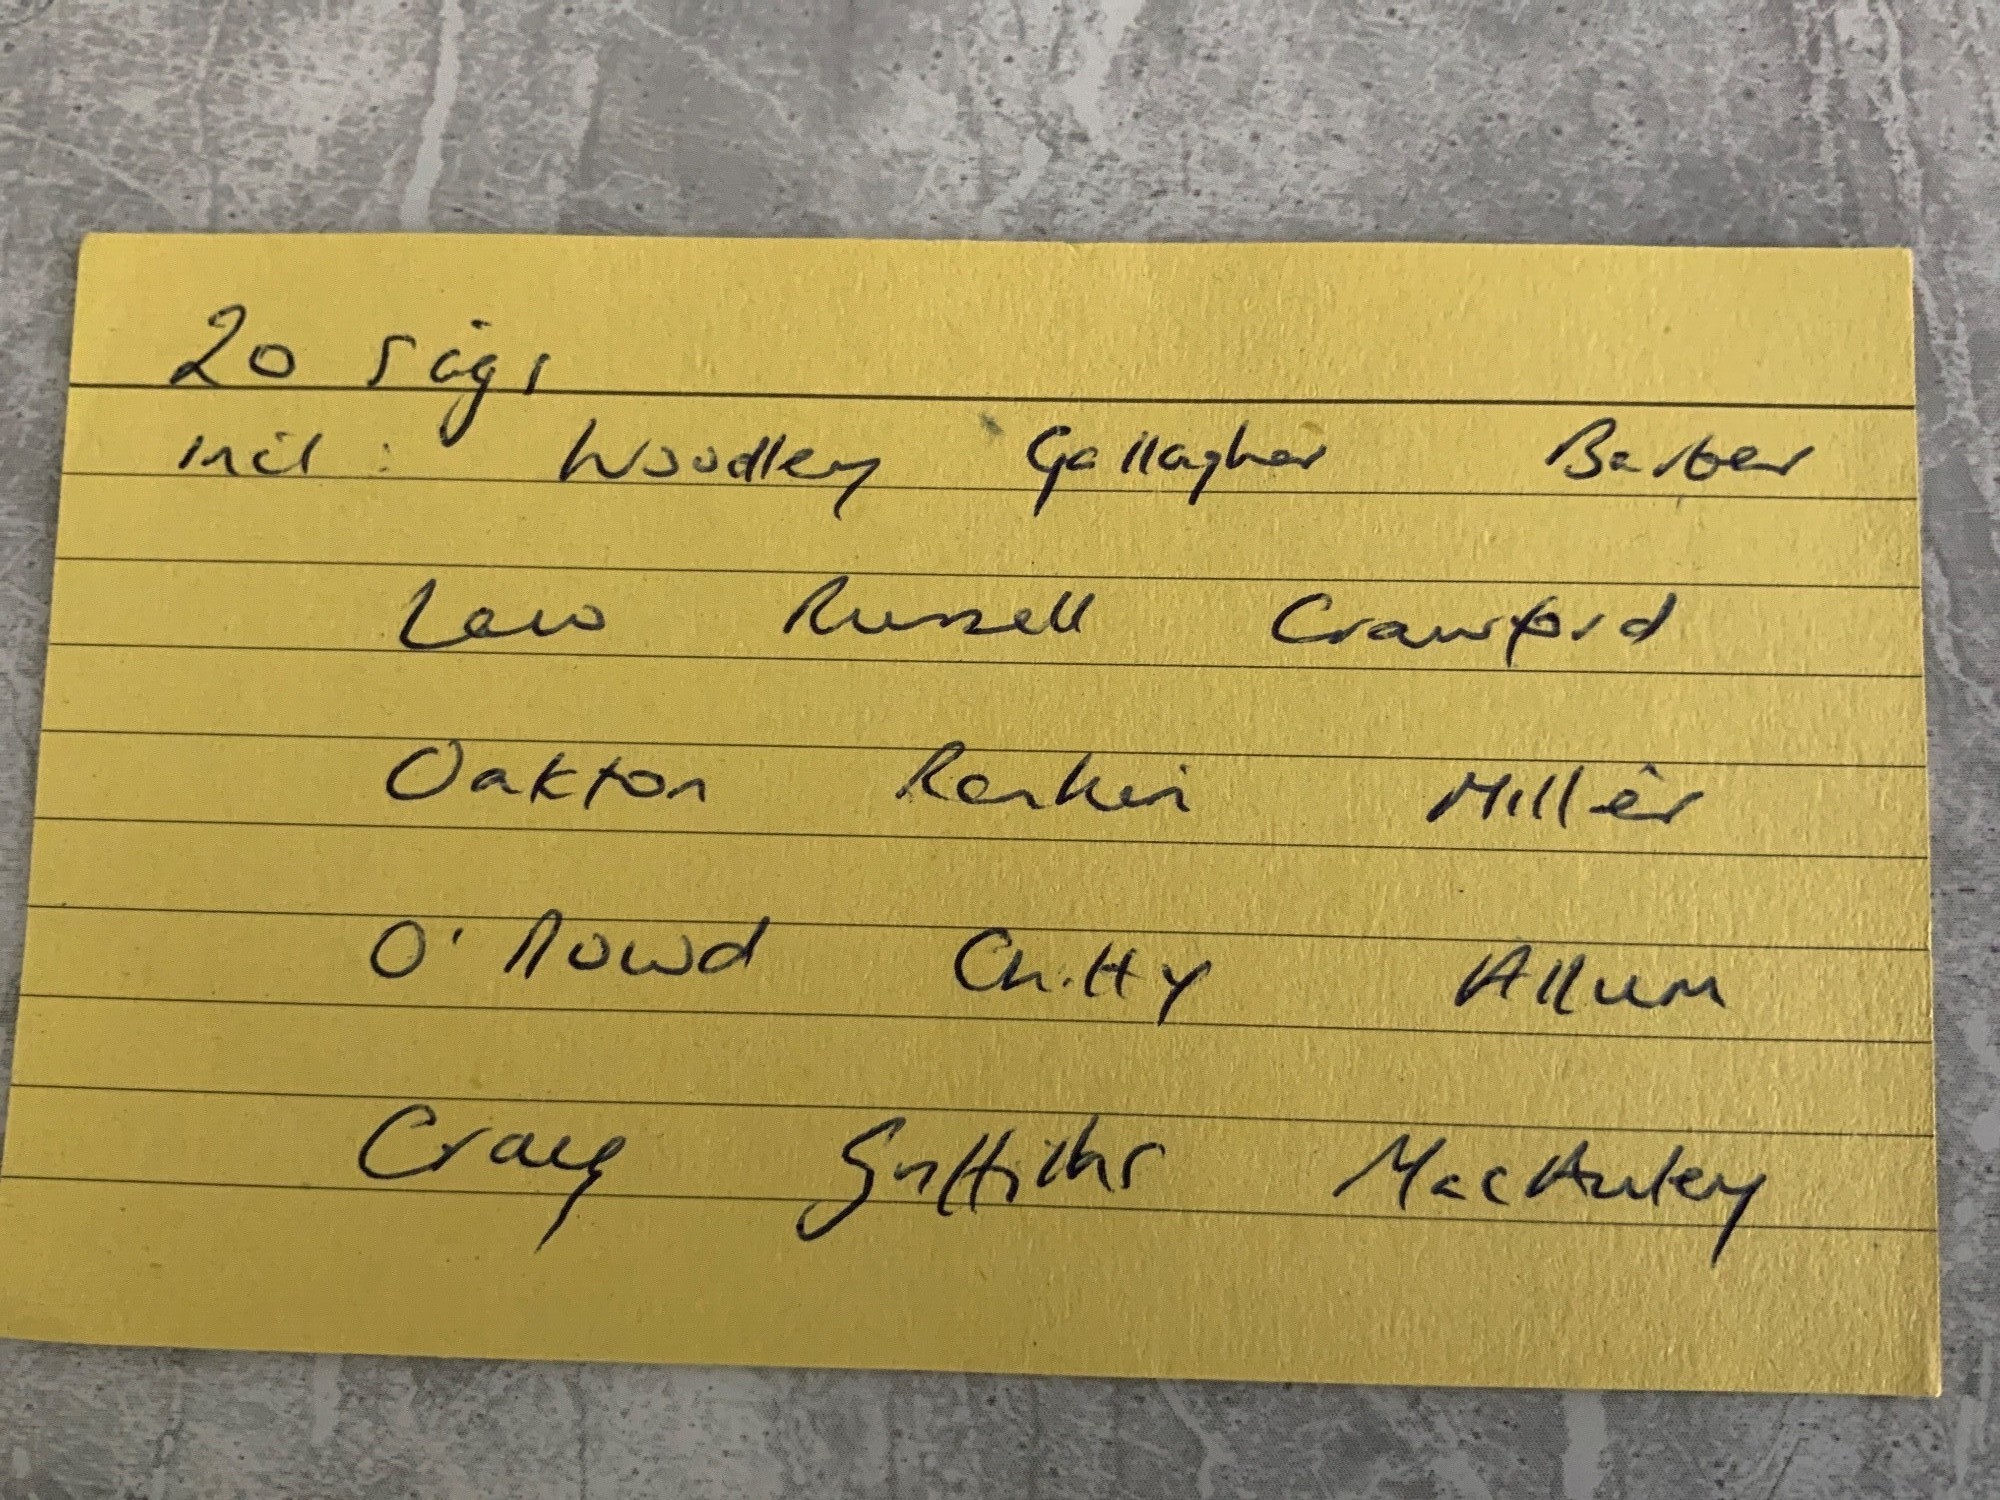 20 sigs
incl: Woodley Gallagher Barber
Law Russell Crawford
Oakton Rankin Miller
O'Rowd Chitty Allum
Craig Griffiths MacAuley